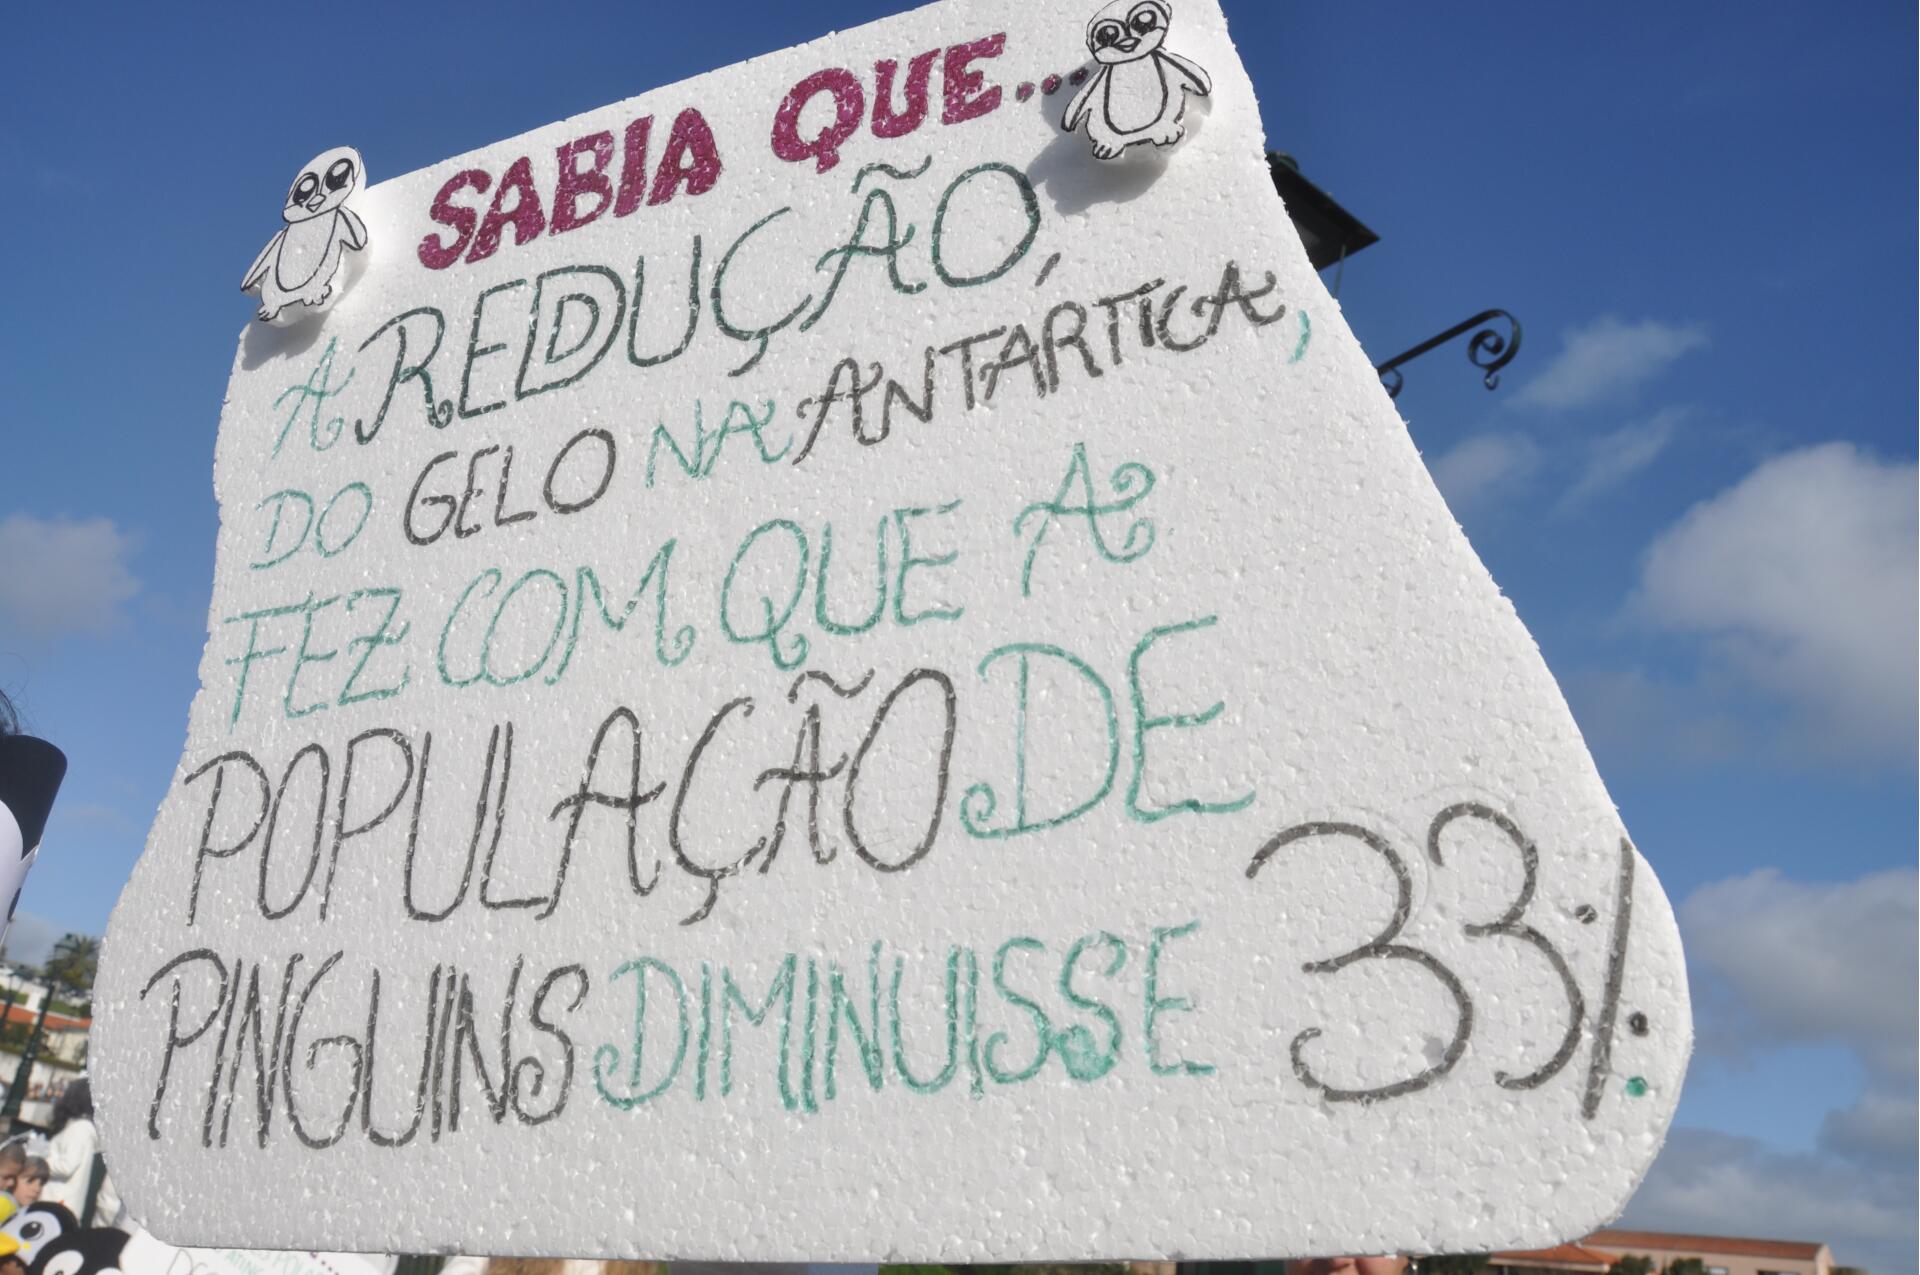 SABIA QUE...
A REDUÇÃO,
DO GELO NA ANTARTICA,
FEZ COM QUE A
POPULAÇÃO DE
PINGUINS DIMINUISSE 33%.